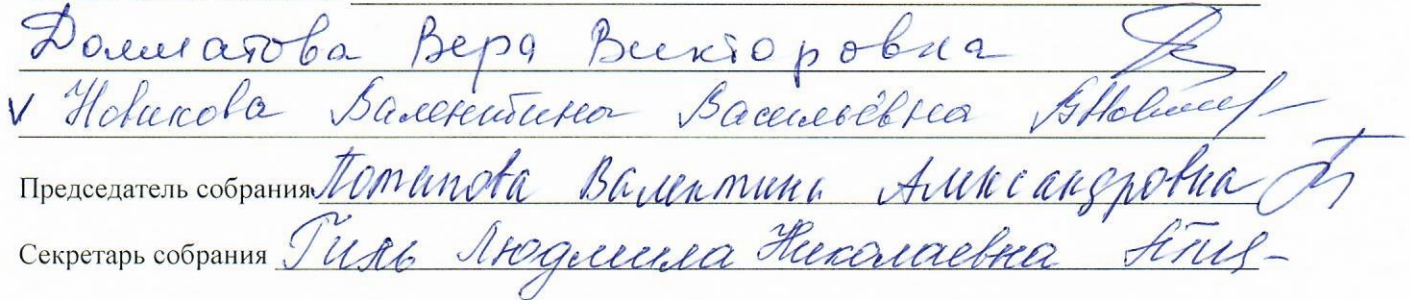 Долматова Вера Викторовна
v Новикова Валентина Васильевна
Председатель собрания Потапова Валентина Александровна
Секретарь собрания Гиль Людмила Николаевна